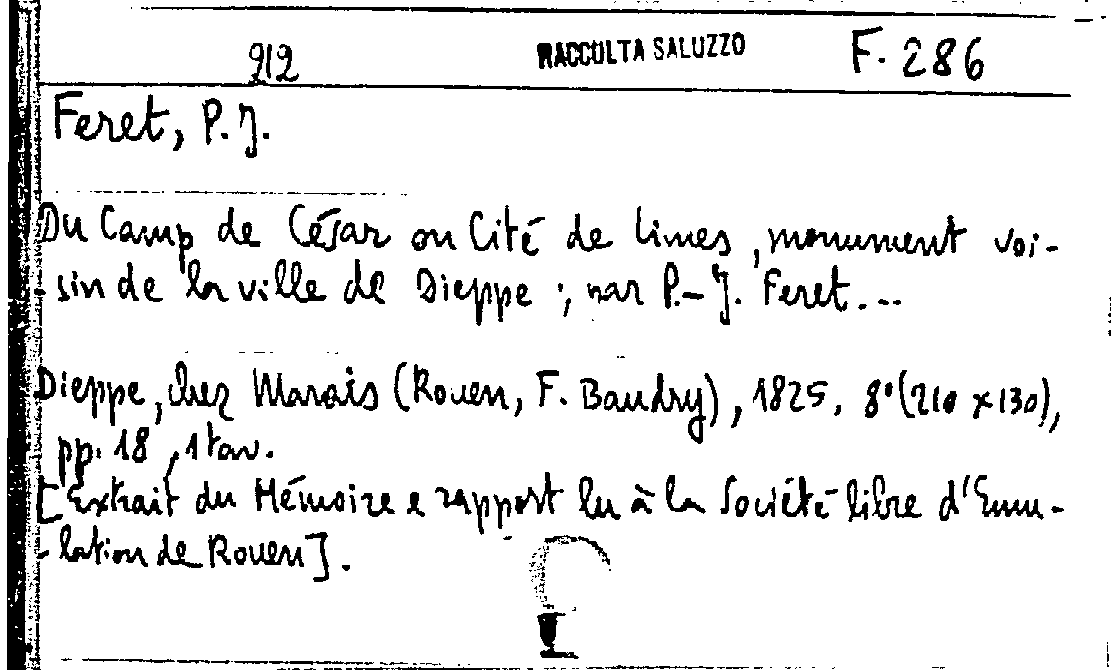 212 RACCOLTA SALUZZO F. 286
Feret, P. J.
Du Camp de César ou Cité de limes, monument voi-
-sin de la ville de Dieppe ; par P.-J. Feret...
Dieppe, chez Marais (Rouen, F. Baudry), 1825, 8° (210 x 130),
pp. 18, 1 tav.
[Extrait du Mémoire e rapport lu à la Société libre d'Emu-
-lation de Rouen].